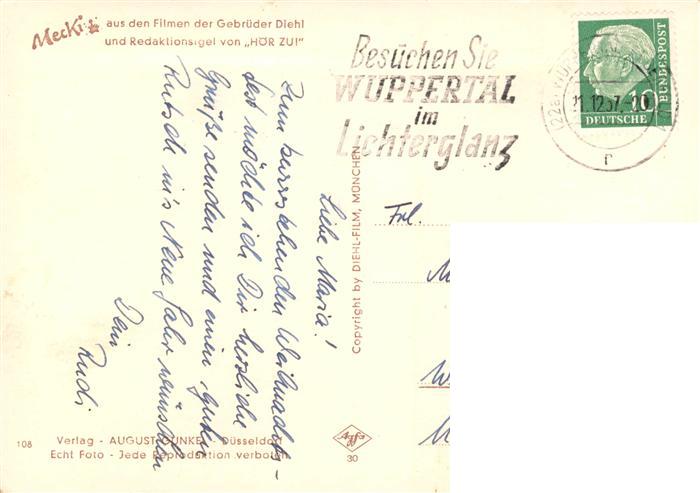 Mecki aus den Filmen der Gebrüder Diehl
und Redaktionsigel von „HÖR ZU!"
Besuchen Sie
WUPPERTAL
im
Lichterglanz
21.12.57
10
DEUTSCHE
BUNDESPOST
Liebe Maria!
Zum bevorstehenden Weihnachts-
fest möchte ich Dir herzliche
Grüße senden und einen guten
Rutsch in's Neue Jahr wünschen
Dein
Rudi
Copyright by DIEHL-FILM, MÜNCHEN
Frl.
108
Verlag - AUGUST GUNKEL - Düsseldorf
Echt Foto - Jede Reproduktion verboten
Agfa
30